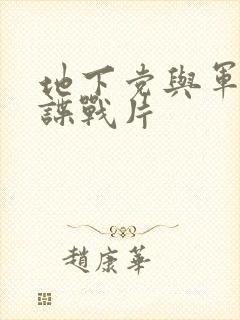 地下党與軍
諜戰片
趙康華